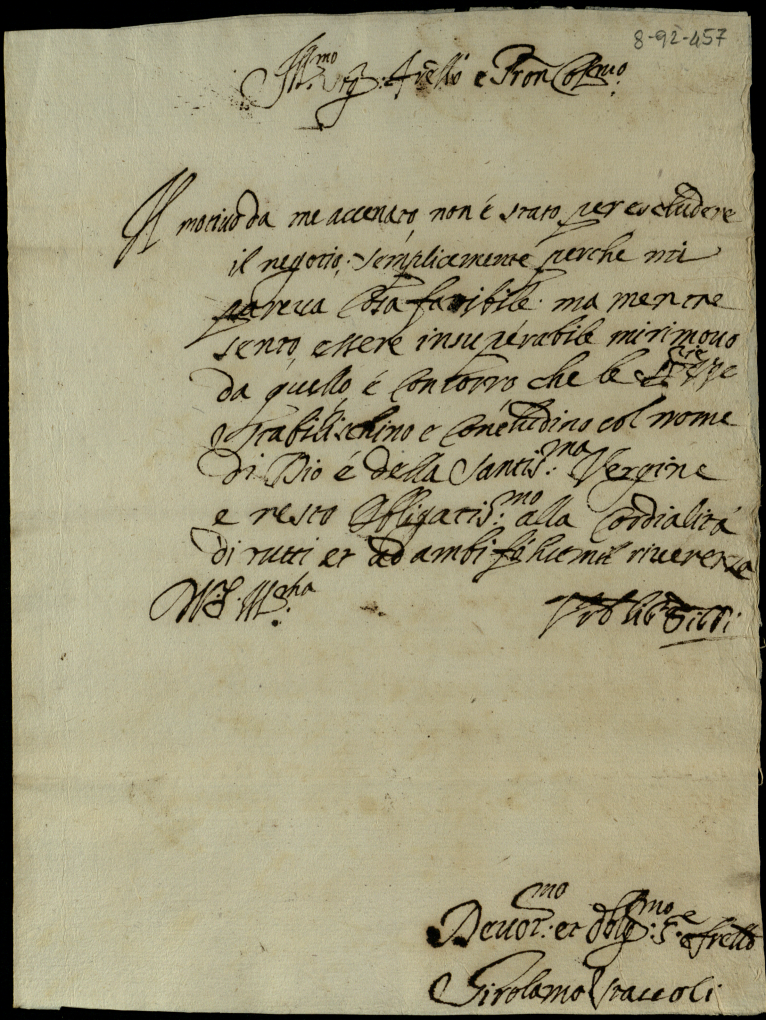 8-92-457
Ill.mo Sig. frello e Pron Col.mo
Il motivo da me accenato, non é stato per escludere
il negotio, semplicemente perche mi
pareva Cosa facibile. ma mentre
sento, essere insuperabile mi rimovo
da quello, é Concorro che le
stabilischino e Concludino col nome
di Dio é della Santis.ma Vergine
e resto Obligatis.mo alla Cordialitá
di tutti et ad ambi fó humil riverenza
V.S. Ill.
Devot.mo et Oblig.mo S.e e frello
Girolamo Staccoli